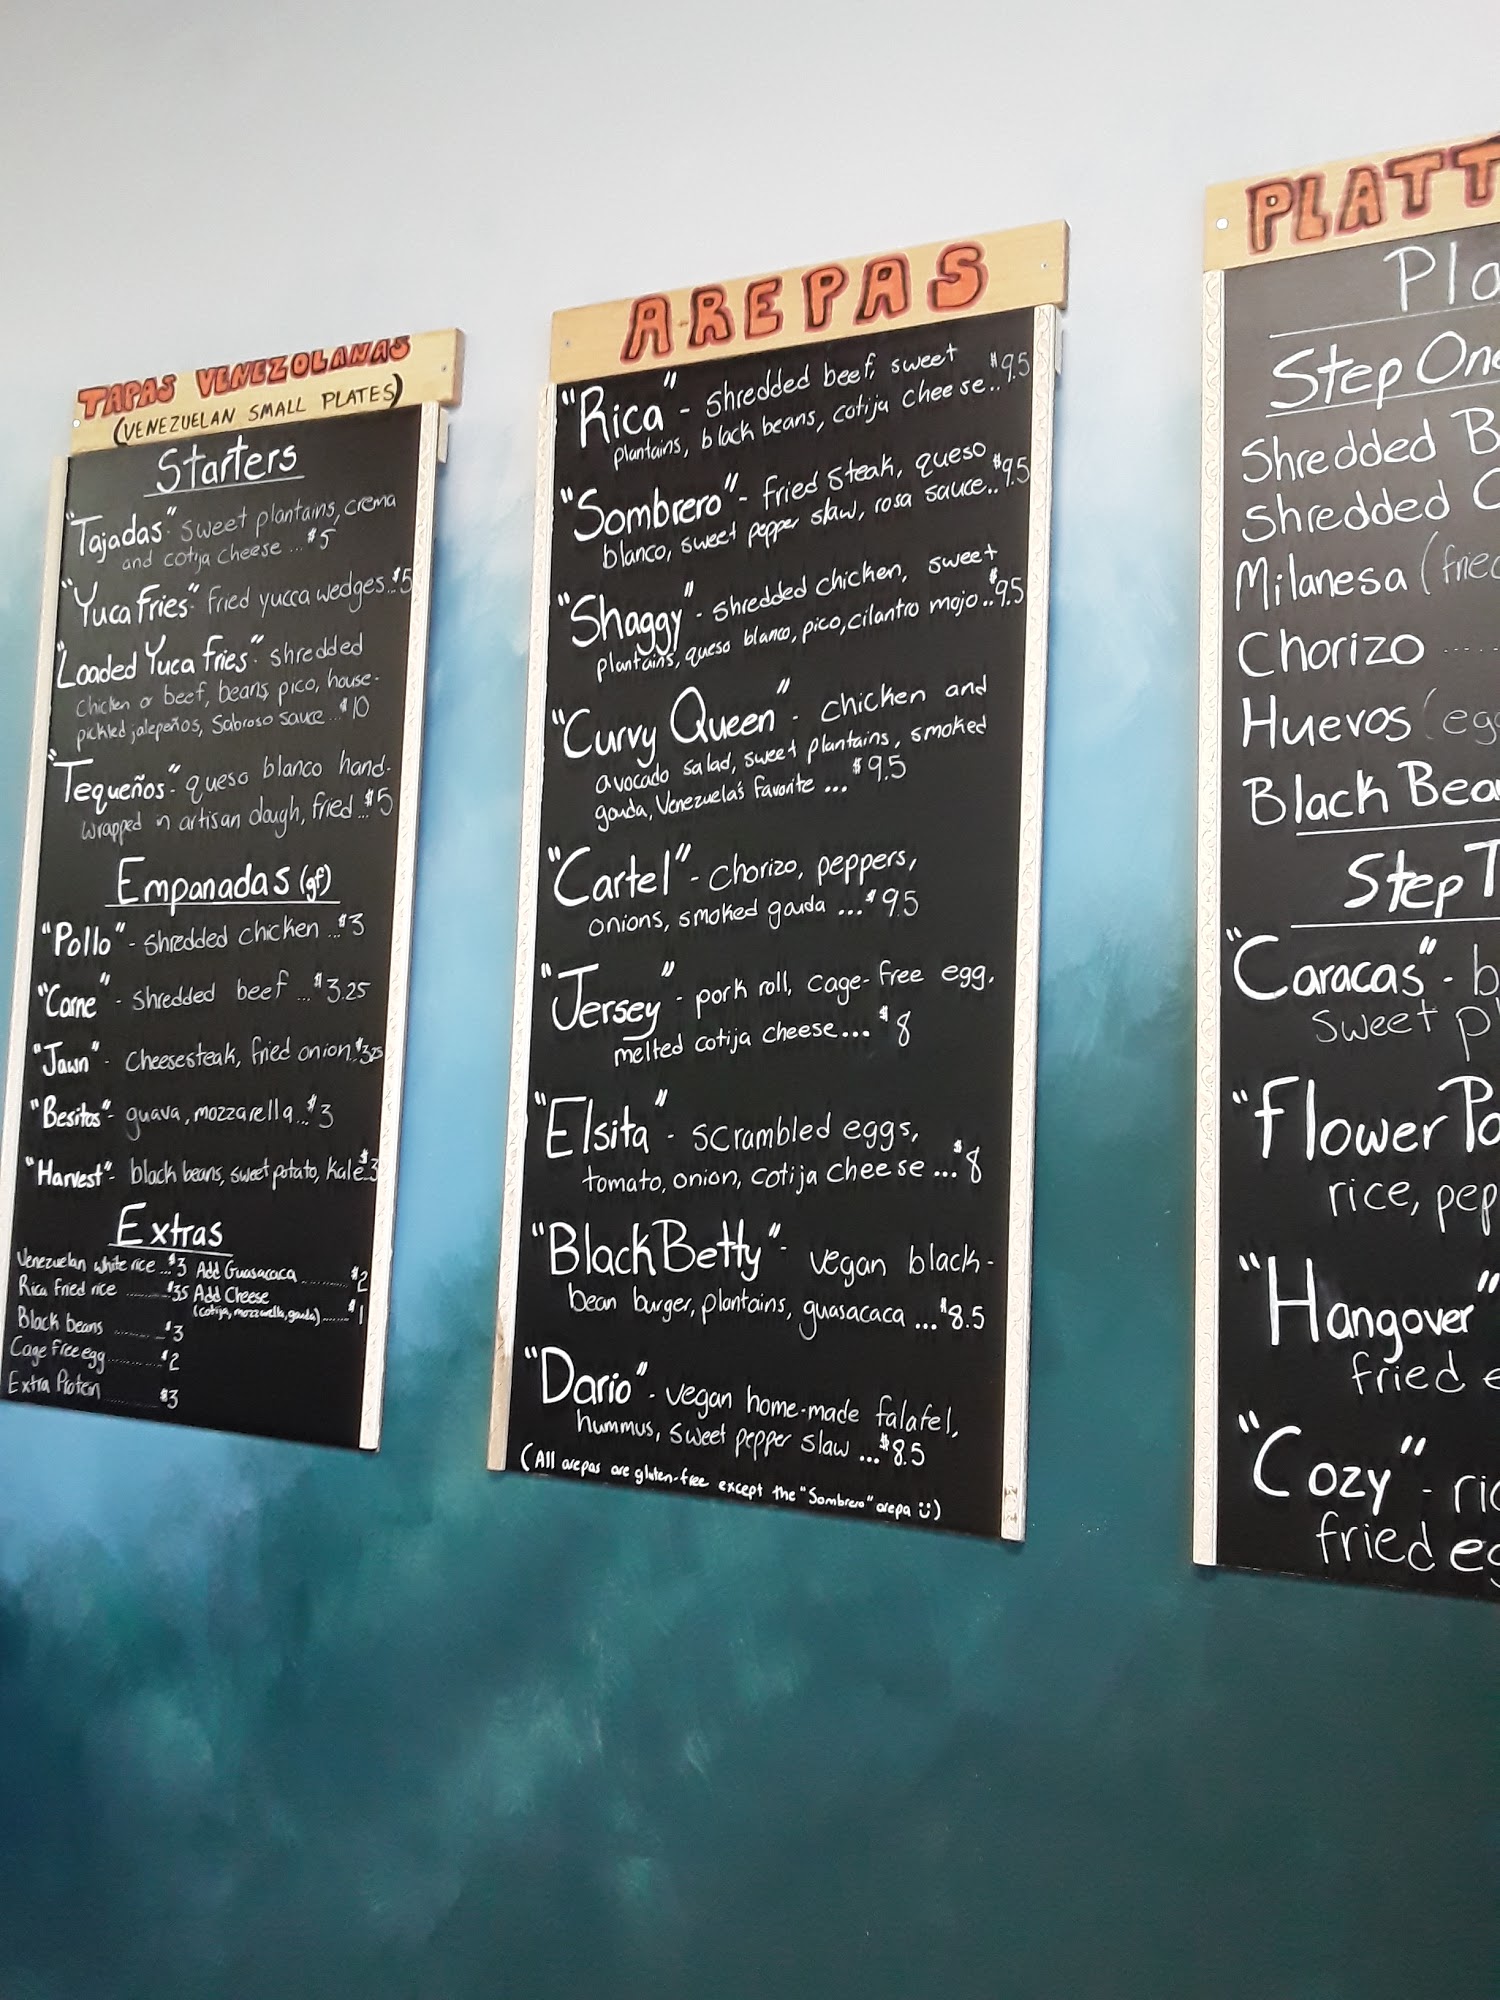 TAPAS VENEZOLANAS
(VENEZUELAN SMALL PLATES)
Starters
"Tajadas" - sweet plantains, crema
and cotija cheese ... $5
"Yuca Fries" fried yucca wedges..$5
"Loaded Yuca Fries" - shredded
chicken or beef, beans, pico, house-
pickled jalepeños, Sabroso sauce ...$10
"Tequeños" - queso blanco hand-
wrapped in artisan dough, fried ...$5
Empanadas (gf)
"Pollo" - shredded chicken ...$3
"Carne" - shredded beef ...$3.25
"Jawn" - cheesesteak, fried onion.$3.25
"Besitos" - guava, mozzarella...$3
"Harvest" - black beans, sweet potato, kale.$3
Extras
Venezuelan white rice ...$3 Add Guasacaca ............ $2
Rica fried rice ........... $3.5 Add Cheese
(cotija, mozzarella, gouda) ....... $1
Black beans ............ $3
Cage free egg ............ $2
Extra Protein ............ $3
AREPAS
"Rica" - shredded beef, sweet
plantains, black beans, cotija cheese..$9.5
"Sombrero" - fried steak, queso
blanco, sweet pepper slaw, rosa sauce..$9.5
"Shaggy" - shredded chicken, sweet
plantains, queso blanco, pico, cilantro mojo..$9.5
"Curvy Queen" - chicken and
avocado salad, sweet plantains, smoked
gouda, Venezuela's favorite ... $9.5
"Cartel" - chorizo, peppers,
onions, smoked gouda ...$9.5
"Jersey" - pork roll, cage-free egg,
melted cotija cheese... $8
"Elsita" - scrambled eggs,
tomato, onion, cotija cheese ...$8
"Black Betty" - vegan black-
bean burger, plantains, guasacaca ...$8.5
"Dario" - vegan home-made falafel,
hummus, sweet pepper slaw ...$8.5
(All arepas are gluten-free except the "Sombrero" arepa ☺)
PLATT
Pla
Step One
Shredded B
Shredded C
Milanesa (fried
Chorizo ......
Huevos (egg
Black Bea
Step T
"Caracas" - b
sweet pl
"Flower Po
rice, pep
"Hangover"
fried e
"Cozy" - ric
fried eg